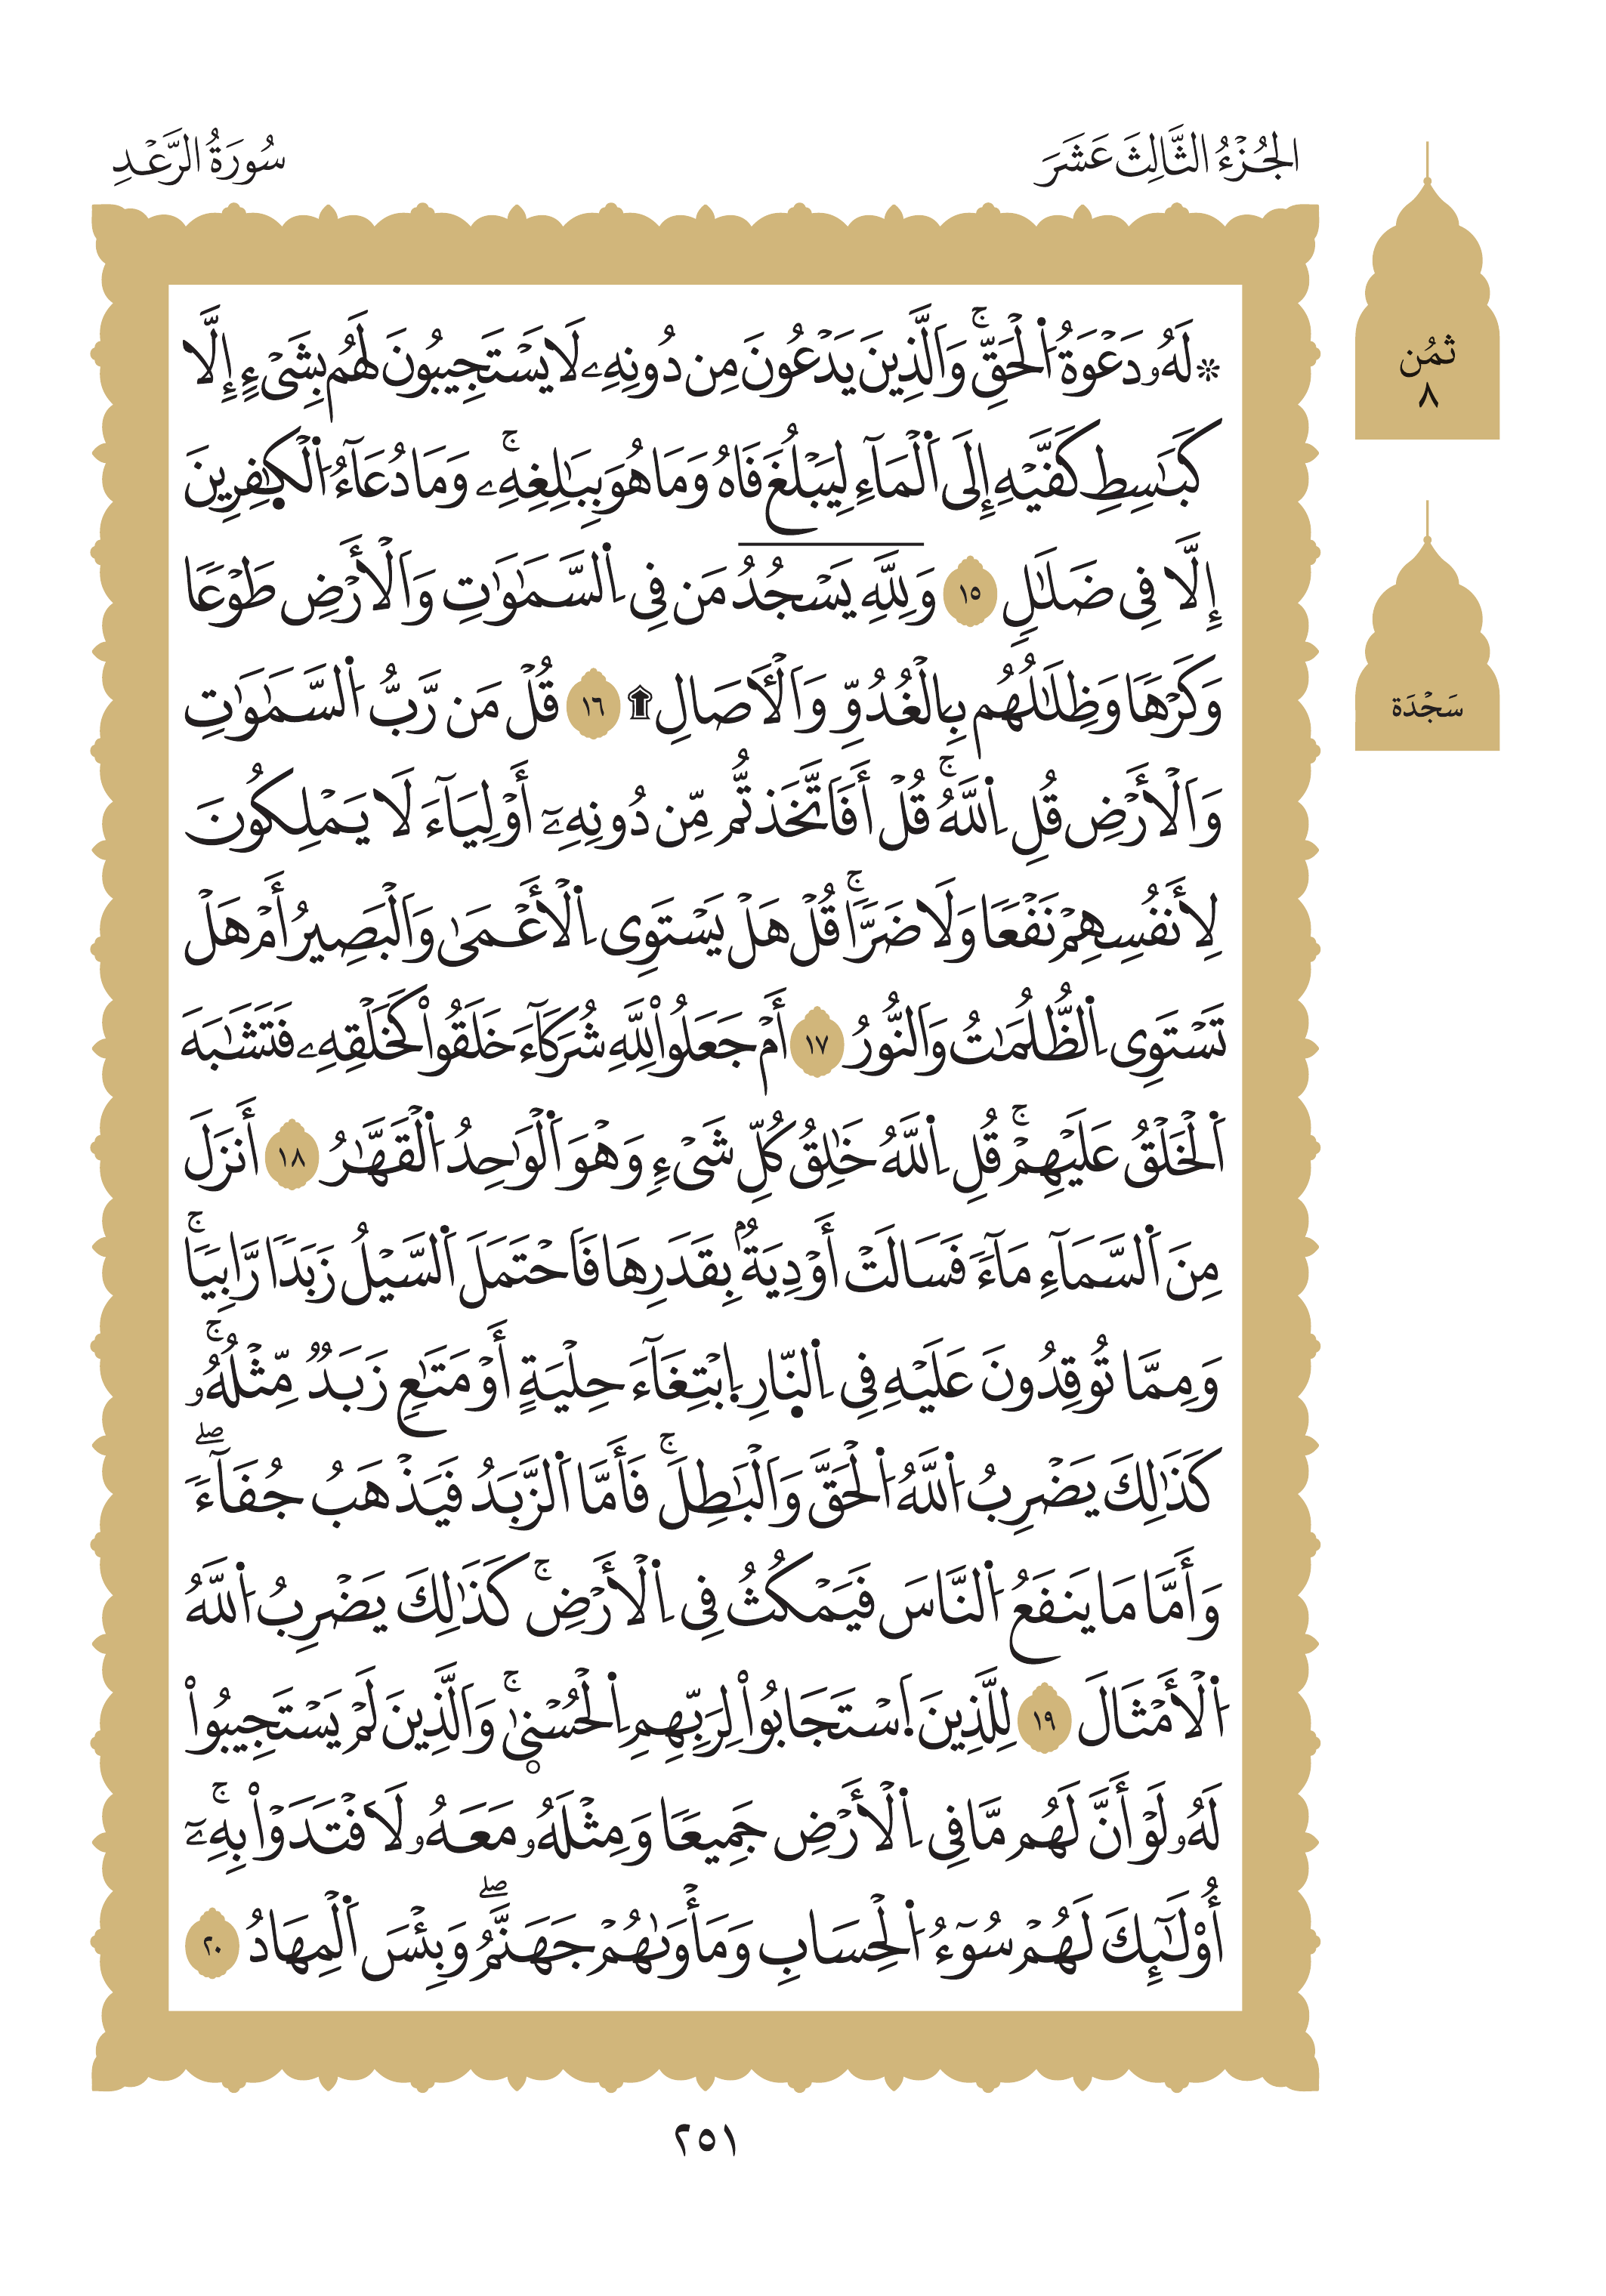 الجُزْءُ الثَّالِثَ عَشَرَ
سُورَةُ الرَّعْدِ
ثُمُن
٨
۞ لَهُۥ دَعْوَةُ اُ۬لْحَقِّۚ وَالَّذِينَ يَدْعُونَ مِن دُونِهِۦ لَا يَسْتَجِيبُونَ لَهُم بِشَىْءٍ إِلَّا
كَبَٰسِطِ كَفَّيْهِ إِلَى اَ۬لْمَآءِ لِيَبْلُغَ فَاهُ وَمَا هُوَ بِبَٰلِغِهِۦۚ وَمَا دُعَآءُ اُ۬لْكٰٜفِرِينَ
إِلَّا فِى ضَلَٰلٍ ١٥ وَلِلَّهِ يَسْجُدُ مَن فِى اِ۬لسَّمَٰوَٰتِ وَالْأَرْضِ طَوْعًا
وَكَرْهًا وَظِلَٰلُهُم بِالْغُدُوِّ وَالْأٓصَالِ۩ ١٦ قُلْ مَن رَّبُّ اُ۬لسَّمَٰوَٰتِ
سَجْدَة
وَالْأَرْضِ قُلِ اِ۬للَّهُۚ قُلْ أَفَاَتَّخَذتُّم مِّن دُونِهِۦٓ أَوْلِيَآءَ لَا يَمْلِكُونَ
لِأَنفُسِهِمْ نَفْعًا وَلَا ضَرًّاۚ قُلْ هَلْ يَسْتَوِى اِ۬لْأَعْمَىٰ وَالْبَصِيرُ أَمْ هَلْ
تَسْتَوِى اِ۬لظُّلُمَٰتُ وَالنُّورُ ١٧ أَمْ جَعَلُوا۟ لِلَّهِ شُرَكَآءَ خَلَقُوا۟ كَخَلْقِهِۦ فَتَشَٰبَهَ
اَ۬لْخَلْقُ عَلَيْهِمْۚ قُلِ اِ۬للَّهُ خَٰلِقُ كُلِّ شَىْءٍ وَهْوَ اَ۬لْوَٰحِدُ اُ۬لْقَهَّٰرُ ١٨ أَنزَلَ
مِنَ اَ۬لسَّمَآءِ مَآءً فَسَالَتْ أَوْدِيَةُۢ بِقَدَرِهَا فَاَحْتَمَلَ اَ۬لسَّيْلُ زَبَدًا رَّابِيًاۚ
وَمِمَّا تُوقِدُونَ عَلَيْهِ فِى اِ۬لنّ۪ارِ اِ۪بْتِغَآءَ حِلْيَةٍ أَوْ مَتَٰعٍ زَبَدٌ مِّثْلُهُۥۚ
كَذَٰلِكَ يَضْرِبُ اُ۬للَّهُ اُ۬لْحَقَّ وَالْبَٰطِلَۚ فَأَمَّا اَ۬لزَّبَدُ فَيَذْهَبُ جُفَآءًۖ
وَأَمَّا مَا يَنفَعُ اُ۬لنَّاسَ فَيَمْكُثُ فِى اِ۬لْأَرْضِۚ كَذَٰلِكَ يَضْرِبُ اُ۬للَّهُ
اُ۬لْأَمْثَالَ ١٩ لِلَّذِينَ اَ۪سْتَجَابُوا۟ لِرَبِّهِمِ اِ۬لْحُسْن۪ىٰۚ وَالَّذِينَ لَمْ يَسْتَجِيبُوا۟
لَهُۥ لَوْ أَنَّ لَهُم مَّا فِى اِ۬لْأَرْضِ جَمِيعًا وَمِثْلَهُۥ مَعَهُۥ لَافْتَدَوْا۟ بِهِۦٓۚ
أُو۟لَٰٓئِكَ لَهُمْ سُوٓءُ اُ۬لْحِسَابِ وَمَأْوَىٰهُمْ جَهَنَّمُۖ وَبِئْسَ اَ۬لْمِهَادُ ٢٠
٢٥١